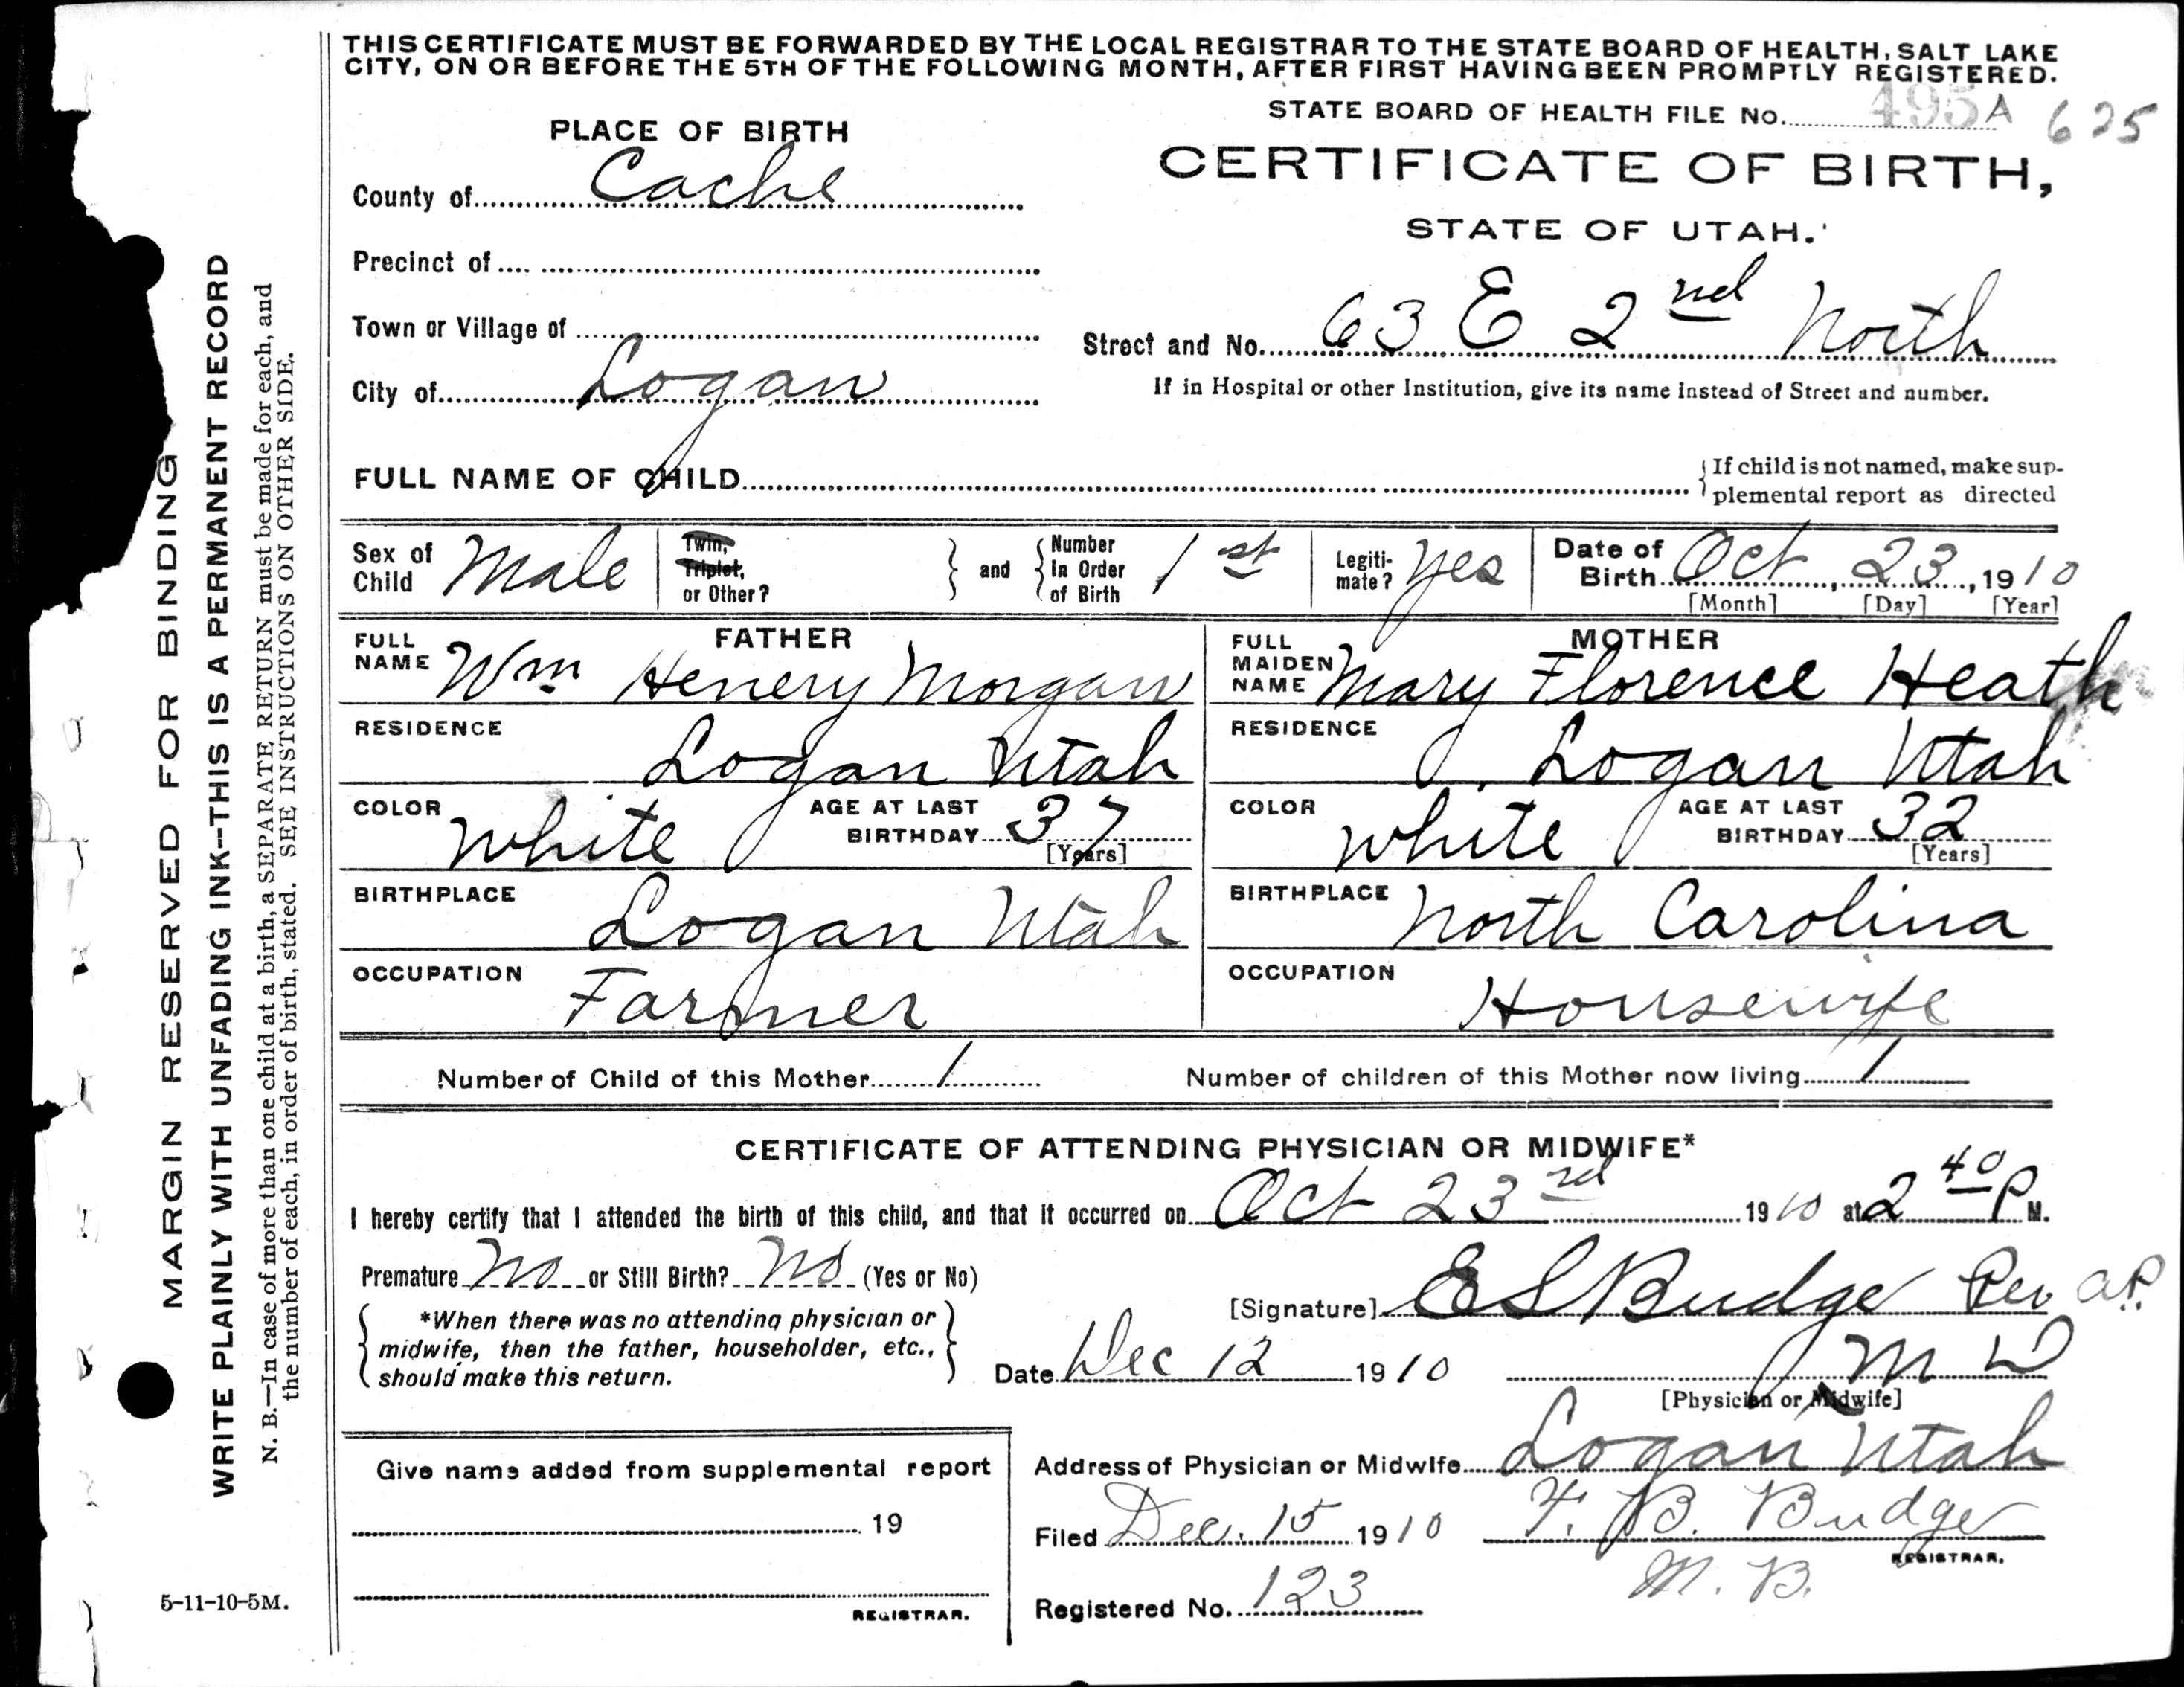 THIS CERTIFICATE MUST BE FORWARDED BY THE LOCAL REGISTRAR TO THE STATE BOARD OF HEALTH, SALT LAKE
CITY, ON OR BEFORE THE 5TH OF THE FOLLOWING MONTH, AFTER FIRST HAVING BEEN PROMPTLY REGISTERED.
STATE BOARD OF HEALTH FILE No. 495 A 625
PLACE OF BIRTH
CERTIFICATE OF BIRTH,
STATE OF UTAH.
County of Cache
Precinct of
Town or Village of
Street and No. 63 E 2nd North
City of Logan
If in Hospital or other Institution, give its name instead of Street and number.
FULL NAME OF CHILD
If child is not named, make sup-
plemental report as directed
Sex of Child Male
Twin, Triplet, or Other?
and
Number In Order of Birth 1st
Legiti-mate? Yes
Date of Birth Oct, 23, 1910
[Month] [Day] [Year]
FATHER
FULL NAME Wm Henery Morgan
RESIDENCE
Logan Utah
COLOR White AGE AT LAST BIRTHDAY 37
[Years]
BIRTHPLACE
Logan Utah
OCCUPATION
Farmer
MOTHER
FULL MAIDEN NAME Mary Florence Heath
RESIDENCE
Logan Utah
COLOR White AGE AT LAST BIRTHDAY 32
[Years]
BIRTHPLACE North Carolina
OCCUPATION
Housewife
Number of Child of this Mother 1 Number of children of this Mother now living 1
CERTIFICATE OF ATTENDING PHYSICIAN OR MIDWIFE*
I hereby certify that I attended the birth of this child, and that it occurred on Oct 23rd 1910 at 2 40 P M.
Premature No or Still Birth? No (Yes or No)
*When there was no attending physician or
midwife, then the father, householder, etc.,
should make this return.
[Signature] E S Budge Per a.P.
Date Dec 12 1910 M D
[Physician or Midwife]
Give name added from supplemental report
19
REGISTRAR.
Address of Physician or Midwife Logan Utah
Filed Dec. 15 1910 T. B. Budge
REGISTRAR.
M. B.
Registered No. 123
MARGIN RESERVED FOR BINDING
WRITE PLAINLY WITH UNFADING INK--THIS IS A PERMANENT RECORD
N. B.—In case of more than one child at a birth, a SEPARATE RETURN must be made for each, and
the number of each, in order of birth, stated. SEE INSTRUCTIONS ON OTHER SIDE.
5-11-10-5M.